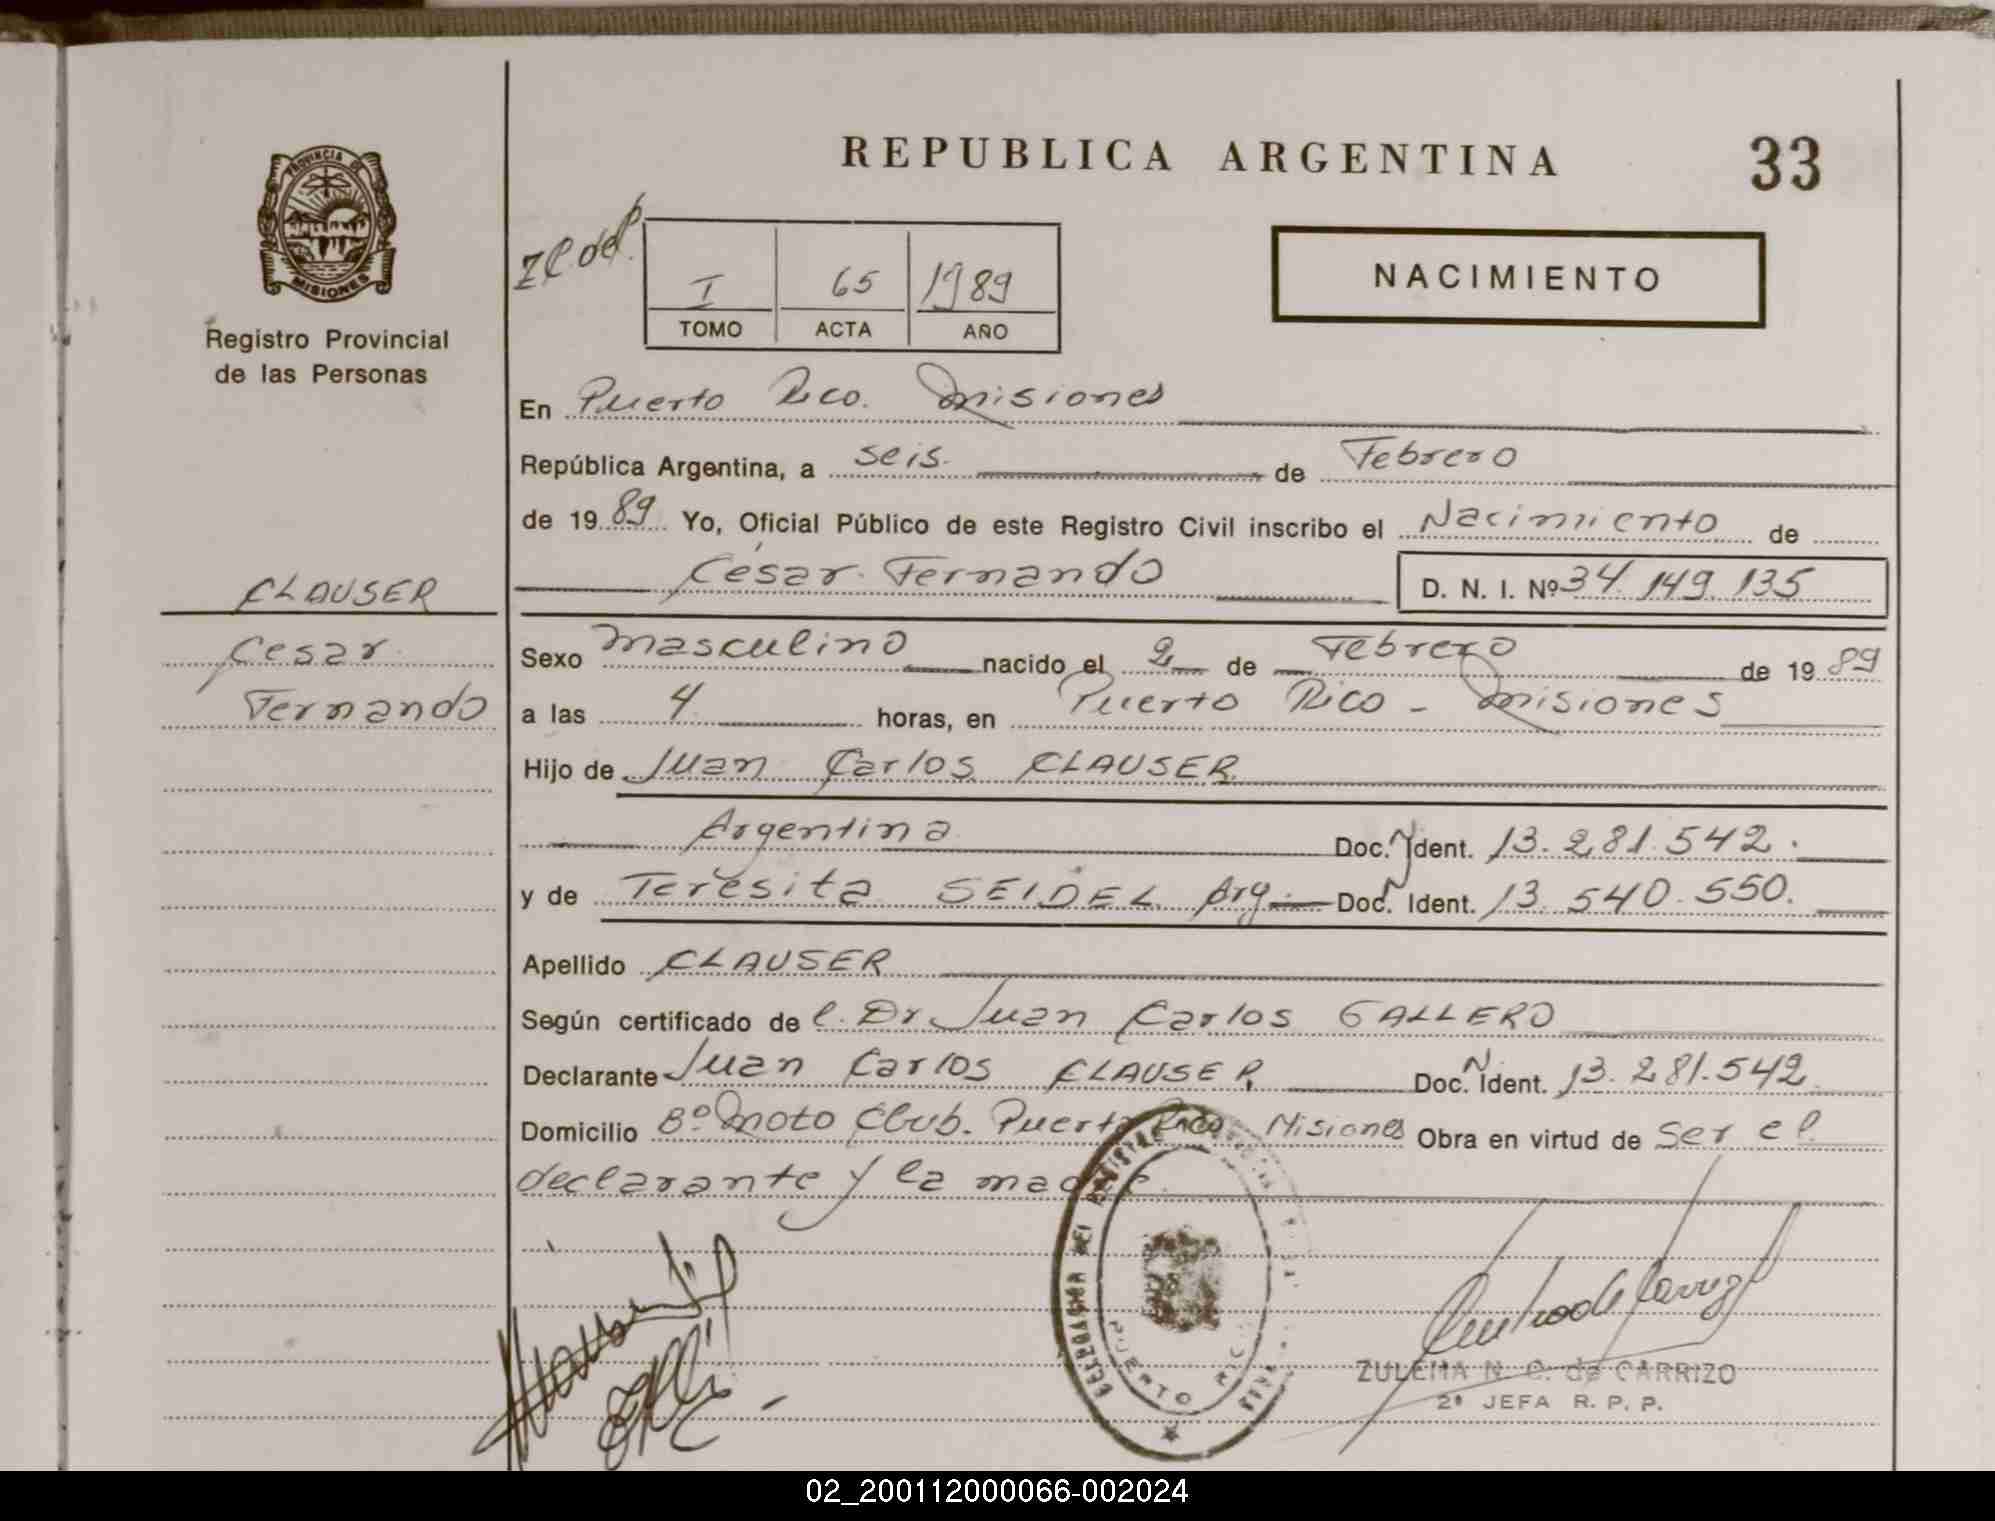 REPUBLICA ARGENTINA 33
PROVINCIA DE
MISIONES
Registro Provincial
de las Personas
I 65 1989
TOMO ACTA AÑO
NACIMIENTO
En Puerto Rico. Misiones
República Argentina, a seis. de Febrero
de 1989 Yo, Oficial Público de este Registro Civil inscribo el Nacimiento de
César Fernando D. N. I. Nº 34.149.135
CLAUSER
Cesar
Fernando
Sexo Masculino nacido el 2 de Febrero de 1989
a las 4 horas, en Puerto Rico - Misiones
Hijo de Juan Carlos CLAUSER
Argentina Doc. Ident. 13.281.542.
y de Teresita SEIDEL Arg. Doc. Ident. 13.540.550.
Apellido CLAUSER
Según certificado de l. Dr. Juan Carlos GALLERO
Declarante Juan Carlos CLAUSER Doc. Ident. 13.281.542
Domicilio Bº Moto Club. Puerto Rico Misiones Obra en virtud de ser el
declarante y la madre.
DELEGACION DEL REGISTRO
PUERTO RICO
ZULEMA N. C. de CARRIZO
2ª JEFA R. P. P.
02_200112000066-002024